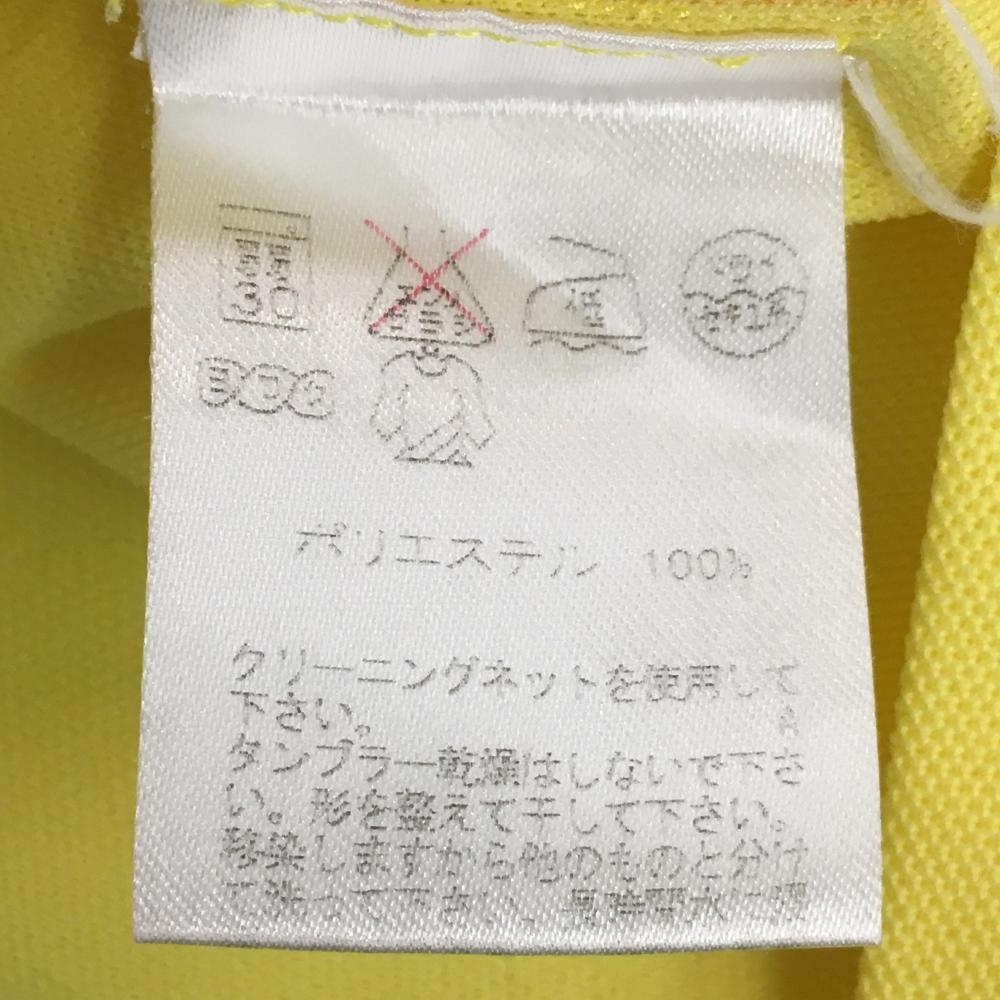 30
低
ポリエステル 100%
クリーニングネットを使用して
下さい。
タンブラー乾燥はしないで下さ
い。形を整えて干して下さい。
移染しますから他のものと分け
て洗って下さい。長時間水に浸